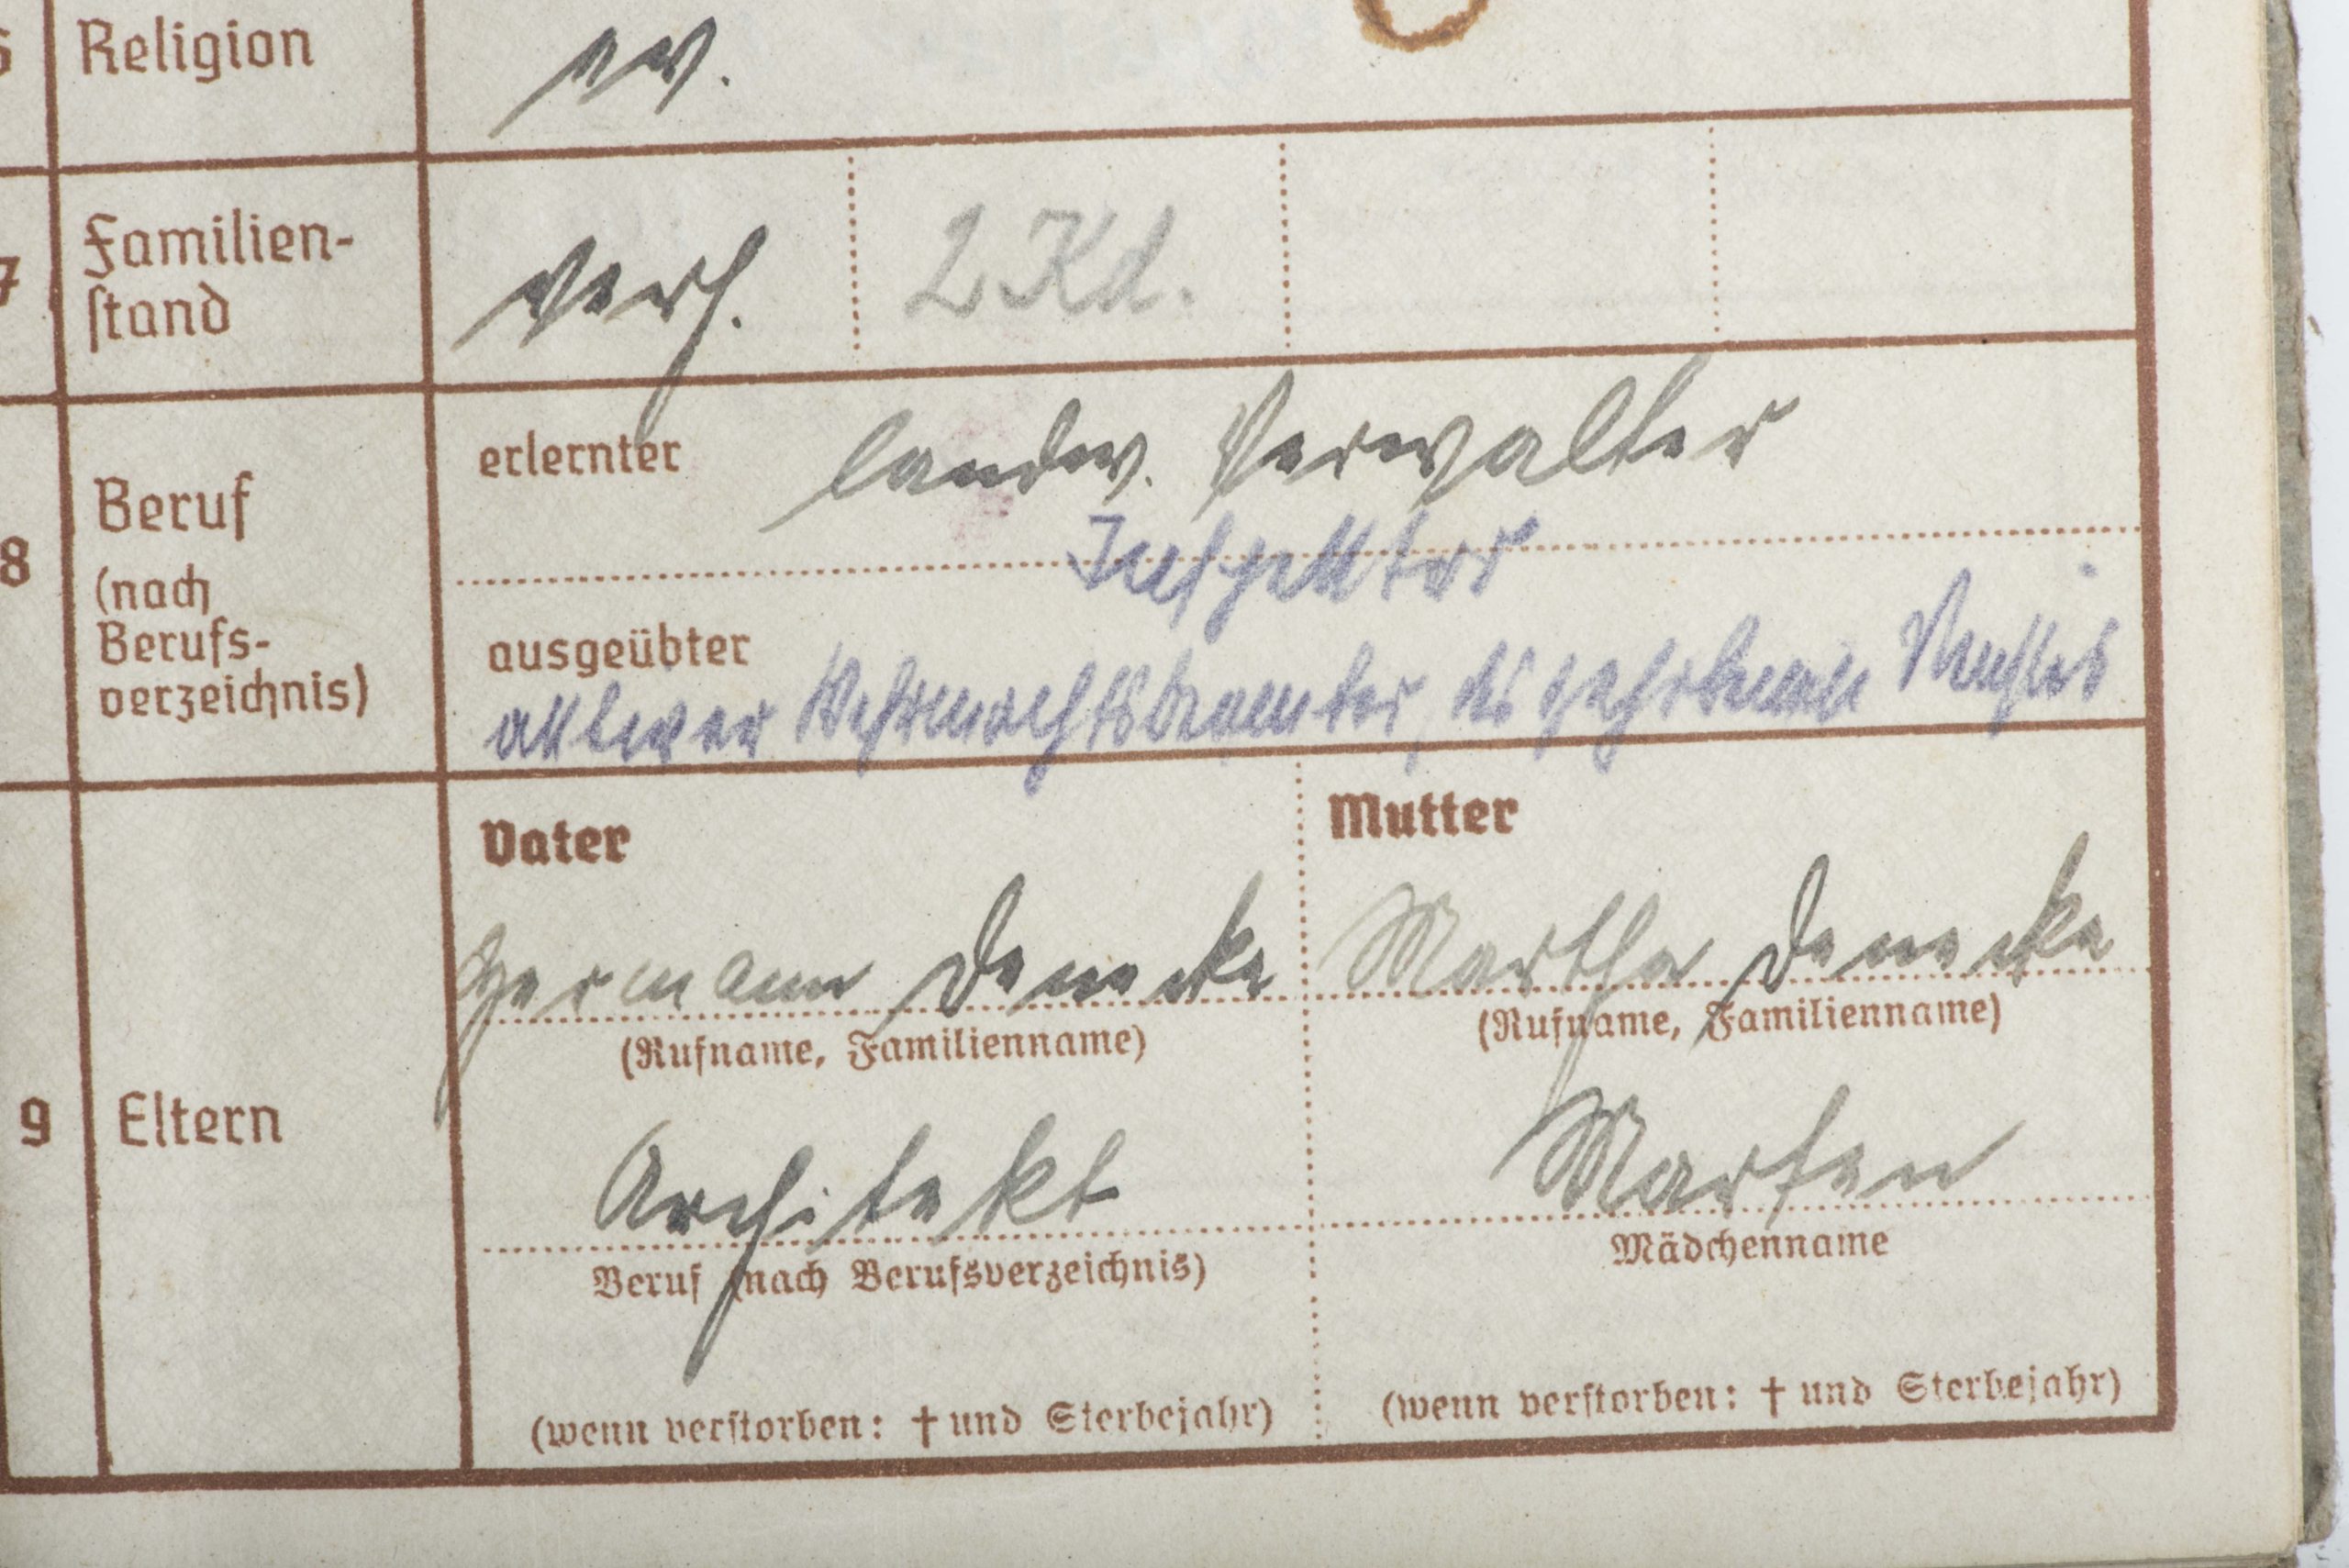 6 Religion ev.
7 Familien-
stand verh. 2 Kd.
8 Beruf
(nach
Berufs-
verzeichnis)
erlernter landw. Verwalter
Inspektor
ausgeübter
aktiver Wehrmachtsbeamter, des gehobenen Dienstes
9 Eltern
Vater
Hermann Denecke
(Rufname, Familienname)
Architekt
Beruf (nach Berufsverzeichnis)
(wenn verstorben: † und Sterbejahr)
Mutter
Martha Denecke
(Rufname, Familienname)
Marten
Mädchenname
(wenn verstorben: † und Sterbejahr)